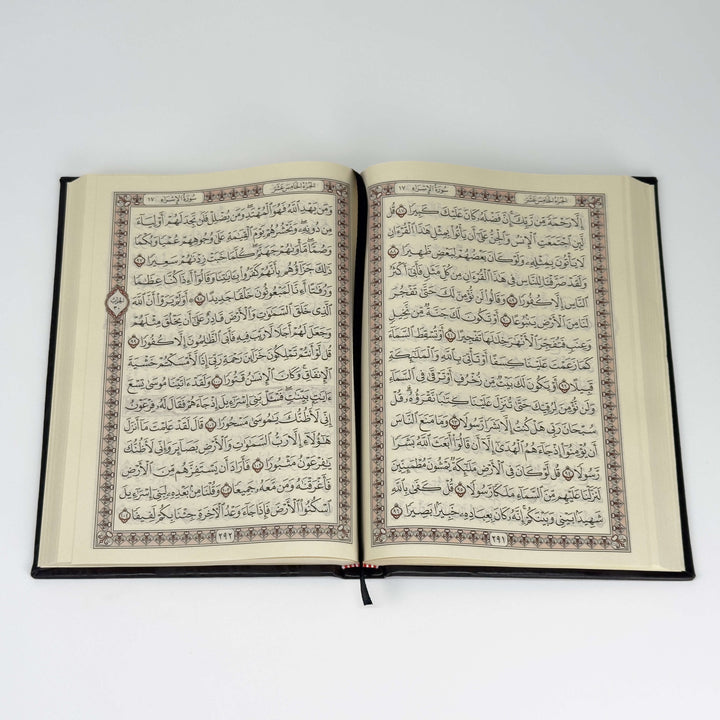 سُورَةُ الإِسْرَاءِ ١٧ الجُزْءُ الخَامِسَ عَشَرَ
إِلَّا رَحْمَةً مِّن رَّبِّكَ إِنَّ فَضْلَهُۥ كَانَ عَلَيْكَ كَبِيرًا ٨٧ قُل
لَّئِنِ ٱجْتَمَعَتِ ٱلْإِنسُ وَٱلْجِنُّ عَلَىٰٓ أَن يَأْتُوا۟ بِمِثْلِ هَٰذَا ٱلْقُرْءَانِ
لَا يَأْتُونَ بِمِثْلِهِۦ وَلَوْ كَانَ بَعْضُهُمْ لِبَعْضٍ ظَهِيرًا ٨٨
وَلَقَدْ صَرَّفْنَا لِلنَّاسِ فِى هَٰذَا ٱلْقُرْءَانِ مِن كُلِّ مَثَلٍ فَأَبَىٰٓ أَكْثَرُ
ٱلنَّاسِ إِلَّا كُفُورًا ٨٩ وَقَالُوا۟ لَن نُّؤْمِنَ لَكَ حَتَّىٰ تَفْجُرَ
لَنَا مِنَ ٱلْأَرْضِ يَنۢبُوعًا ٩٠ أَوْ تَكُونَ لَكَ جَنَّةٌ مِّن نَّخِيلٍ
وَعِنَبٍ فَتُفَجِّرَ ٱلْأَنْهَٰرَ خِلَٰلَهَا تَفْجِيرًا ٩١ أَوْ تُسْقِطَ ٱلسَّمَآءَ
كَمَا زَعَمْتَ عَلَيْنَا كِسَفًا أَوْ تَأْتِىَ بِٱللَّهِ وَٱلْمَلَٰٓئِكَةِ
قَبِيلًا ٩٢ أَوْ يَكُونَ لَكَ بَيْتٌ مِّن زُخْرُفٍ أَوْ تَرْقَىٰ فِى ٱلسَّمَآءِ
وَلَن نُّؤْمِنَ لِرُقِيِّكَ حَتَّىٰ تُنَزِّلَ عَلَيْنَا كِتَٰبًا نَّقْرَؤُهُۥ قُلْ
سُبْحَانَ رَبِّى هَلْ كُنتُ إِلَّا بَشَرًا رَّسُولًا ٩٣ وَمَا مَنَعَ ٱلنَّاسَ
أَن يُؤْمِنُوٓا۟ إِذْ جَآءَهُمُ ٱلْهُدَىٰٓ إِلَّآ أَن قَالُوٓا۟ أَبَعَثَ ٱللَّهُ بَشَرًا
رَّسُولًا ٩٤ قُل لَّوْ كَانَ فِى ٱلْأَرْضِ مَلَٰٓئِكَةٌ يَمْشُونَ مُطْمَئِنِّينَ
لَنَزَّلْنَا عَلَيْهِم مِّنَ ٱلسَّمَآءِ مَلَكًا رَّسُولًا ٩٥ قُلْ كَفَىٰ بِٱللَّهِ
شَهِيدًۢا بَيْنِى وَبَيْنَكُمْ إِنَّهُۥ كَانَ بِعِبَادِهِۦ خَبِيرًۢا بَصِيرًا ٩٦
٢٩١
الجُزْءُ الخَامِسَ عَشَرَ سُورَةُ الإِسْرَاءِ ١٧
وَمَن يَهْدِ ٱللَّهُ فَهُوَ ٱلْمُهْتَدِ وَمَن يُضْلِلْ فَلَن تَجِدَ لَهُمْ أَوْلِيَآءَ
مِن دُونِهِۦ وَنَحْشُرُهُمْ يَوْمَ ٱلْقِيَٰمَةِ عَلَىٰ وُجُوهِهِمْ عُمْيًا وَبُكْمًا
وَصُمًّا مَّأْوَىٰهُمْ جَهَنَّمُ كُلَّمَا خَبَتْ زِدْنَٰهُمْ سَعِيرًا ٩٧
ذَٰلِكَ جَزَآؤُهُم بِأَنَّهُمْ كَفَرُوا۟ بِـَٔايَٰتِنَا وَقَالُوٓا۟ أَءِذَا كُنَّا عِظَٰمًا
وَرُفَٰتًا أَءِنَّا لَمَبْعُوثُونَ خَلْقًا جَدِيدًا ٩٨ أَوَلَمْ يَرَوْا۟ أَنَّ ٱللَّهَ
ٱلَّذِى خَلَقَ ٱلسَّمَٰوَٰتِ وَٱلْأَرْضَ قَادِرٌ عَلَىٰٓ أَن يَخْلُقَ مِثْلَهُمْ
وَجَعَلَ لَهُمْ أَجَلًا لَّا رَيْبَ فِيهِ فَأَبَى ٱلظَّٰلِمُونَ إِلَّا كُفُورًا ٩٩
قُل لَّوْ أَنتُمْ تَمْلِكُونَ خَزَآئِنَ رَحْمَةِ رَبِّىٓ إِذًا لَّأَمْسَكْتُمْ خَشْيَةَ
ٱلْإِنفَاقِ وَكَانَ ٱلْإِنسَٰنُ قَتُورًا ١٠٠ وَلَقَدْ ءَاتَيْنَا مُوسَىٰ تِسْعَ
ءَايَٰتٍۭ بَيِّنَٰتٍ فَسْـَٔلْ بَنِىٓ إِسْرَٰٓءِيلَ إِذْ جَآءَهُمْ فَقَالَ لَهُۥ فِرْعَوْنُ
إِنِّى لَأَظُنُّكَ يَٰمُوسَىٰ مَسْحُورًا ١٠١ قَالَ لَقَدْ عَلِمْتَ مَآ أَنزَلَ
هَٰٓؤُلَآءِ إِلَّا رَبُّ ٱلسَّمَٰوَٰتِ وَٱلْأَرْضِ بَصَآئِرَ وَإِنِّى لَأَظُنُّكَ
يَٰفِرْعَوْنُ مَثْبُورًا ١٠٢ فَأَرَادَ أَن يَسْتَفِزَّهُم مِّنَ ٱلْأَرْضِ
فَأَغْرَقْنَٰهُ وَمَن مَّعَهُۥ جَمِيعًا ١٠٣ وَقُلْنَا مِنۢ بَعْدِهِۦ لِبَنِىٓ إِسْرَٰٓءِيلَ
ٱسْكُنُوا۟ ٱلْأَرْضَ فَإِذَا جَآءَ وَعْدُ ٱلْءَاخِرَةِ جِئْنَا بِكُمْ لَفِيفًا ١٠٤
٢٩٢